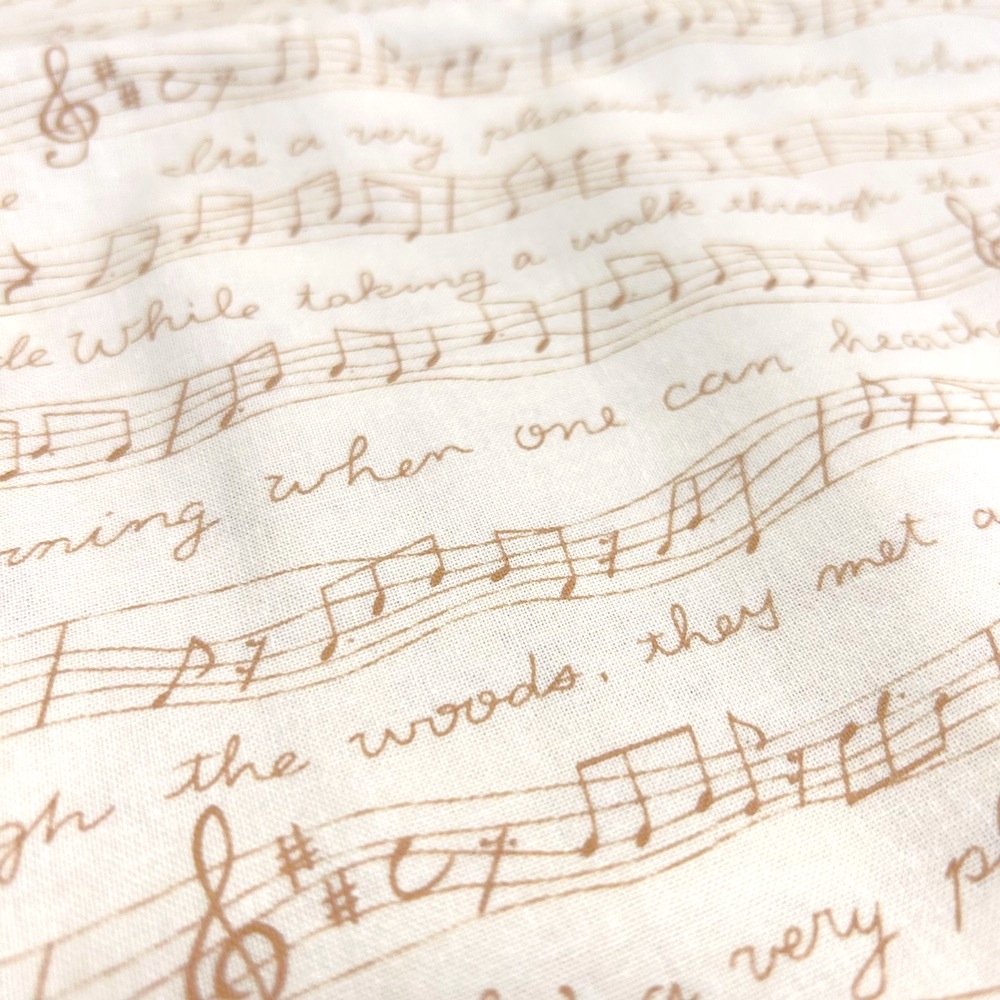 It's a very pleasant morning when
e
de While taking a walk through the
rning when one can hear th
gh the woods. they met a
a very p